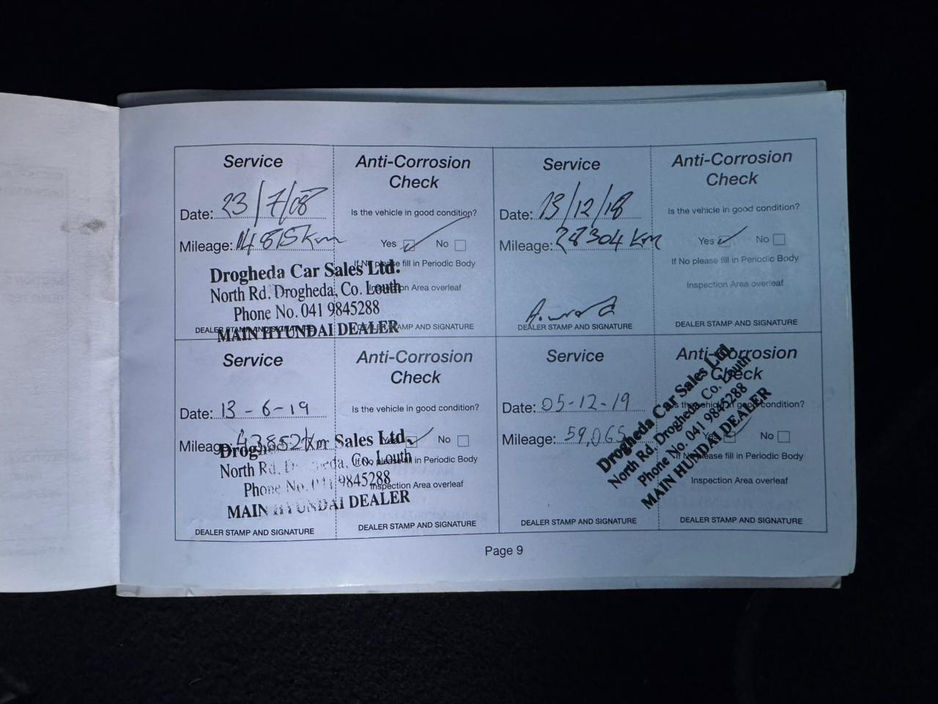 Service
Anti-Corrosion
Check
Date: 23/7/08
Is the vehicle in good condition?
Mileage: 14815km
Yes No
If No please fill in Periodic Body
Inspection Area overleaf
Drogheda Car Sales Ltd.
North Rd. Drogheda, Co. Louth
Phone No. 041 9845288
MAIN HYUNDAI DEALER
DEALER STAMP AND SIGNATURE
DEALER STAMP AND SIGNATURE
Service
Anti-Corrosion
Check
Date: 13/12/18
Is the vehicle in good condition?
Mileage: 28304 km
Yes No
If No please fill in Periodic Body
Inspection Area overleaf
DEALER STAMP AND SIGNATURE
DEALER STAMP AND SIGNATURE
Service
Anti-Corrosion
Check
Date: 13-6-19
Is the vehicle in good condition?
Mileage: 43852km
Yes No
If No please fill in Periodic Body
Inspection Area overleaf
Drogheda Car Sales Ltd.
North Rd. Drogheda, Co. Louth
Phone No. 041 9845288
MAIN HYUNDAI DEALER
DEALER STAMP AND SIGNATURE
DEALER STAMP AND SIGNATURE
Service
Anti-Corrosion
Check
Date: 05-12-19
Is the vehicle in good condition?
Mileage: 59,065
Yes No
If No please fill in Periodic Body
Inspection Area overleaf
Drogheda Car Sales Ltd.
North Rd. Drogheda, Co. Louth
Phone No. 041 9845288
MAIN HYUNDAI DEALER
DEALER STAMP AND SIGNATURE
DEALER STAMP AND SIGNATURE
Page 9